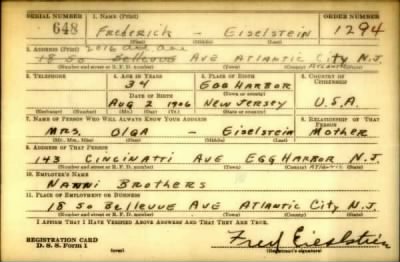 SERIAL NUMBER 1. NAME (Print) ORDER NUMBER
648 FREDERICK - Eiselstein 1294
2. ADDRESS (Print) 2016 ave
18 So Bellevue Ave ATLANTIC City N.J.
(Number and street or R. F. D. number) (Town) (County) (State)
3. TELEPHONE 4. AGE IN YEARS 5. PLACE OF BIRTH 6. COUNTRY OF CITIZENSHIP
34 EGG HARBOR
DATE OF BIRTH (Town or county)
AUG 2 1906 NEW JERSEY U.S.A.
(Exchange) (Number) (Mo.) (Day) (Yr.) (State or country)
7. NAME OF PERSON WHO WILL ALWAYS KNOW YOUR ADDRESS 8. RELATIONSHIP OF THAT PERSON
MRS. OLGA - Eiselstein MOTHER
(Mr., Mrs., Miss) (First) (Middle) (Last)
9. ADDRESS OF THAT PERSON
143 CINCINATTI AVE EGG HARBOR N.J.
(Number and street or R. F. D. number) (Town) (County) (State)
10. EMPLOYER'S NAME
NANNI BROTHERS
11. PLACE OF EMPLOYMENT OR BUSINESS
18 So Bellevue AVE ATLANTIC CITY N.J.
(Number and street or R. F. D. number) (Town) (County) (State)
I AFFIRM THAT I HAVE VERIFIED ABOVE ANSWERS AND THAT THEY ARE TRUE.
REGISTRATION CARD
D. S. S. Form 1 (over) Fred Eiselstein
(Registrant's signature)